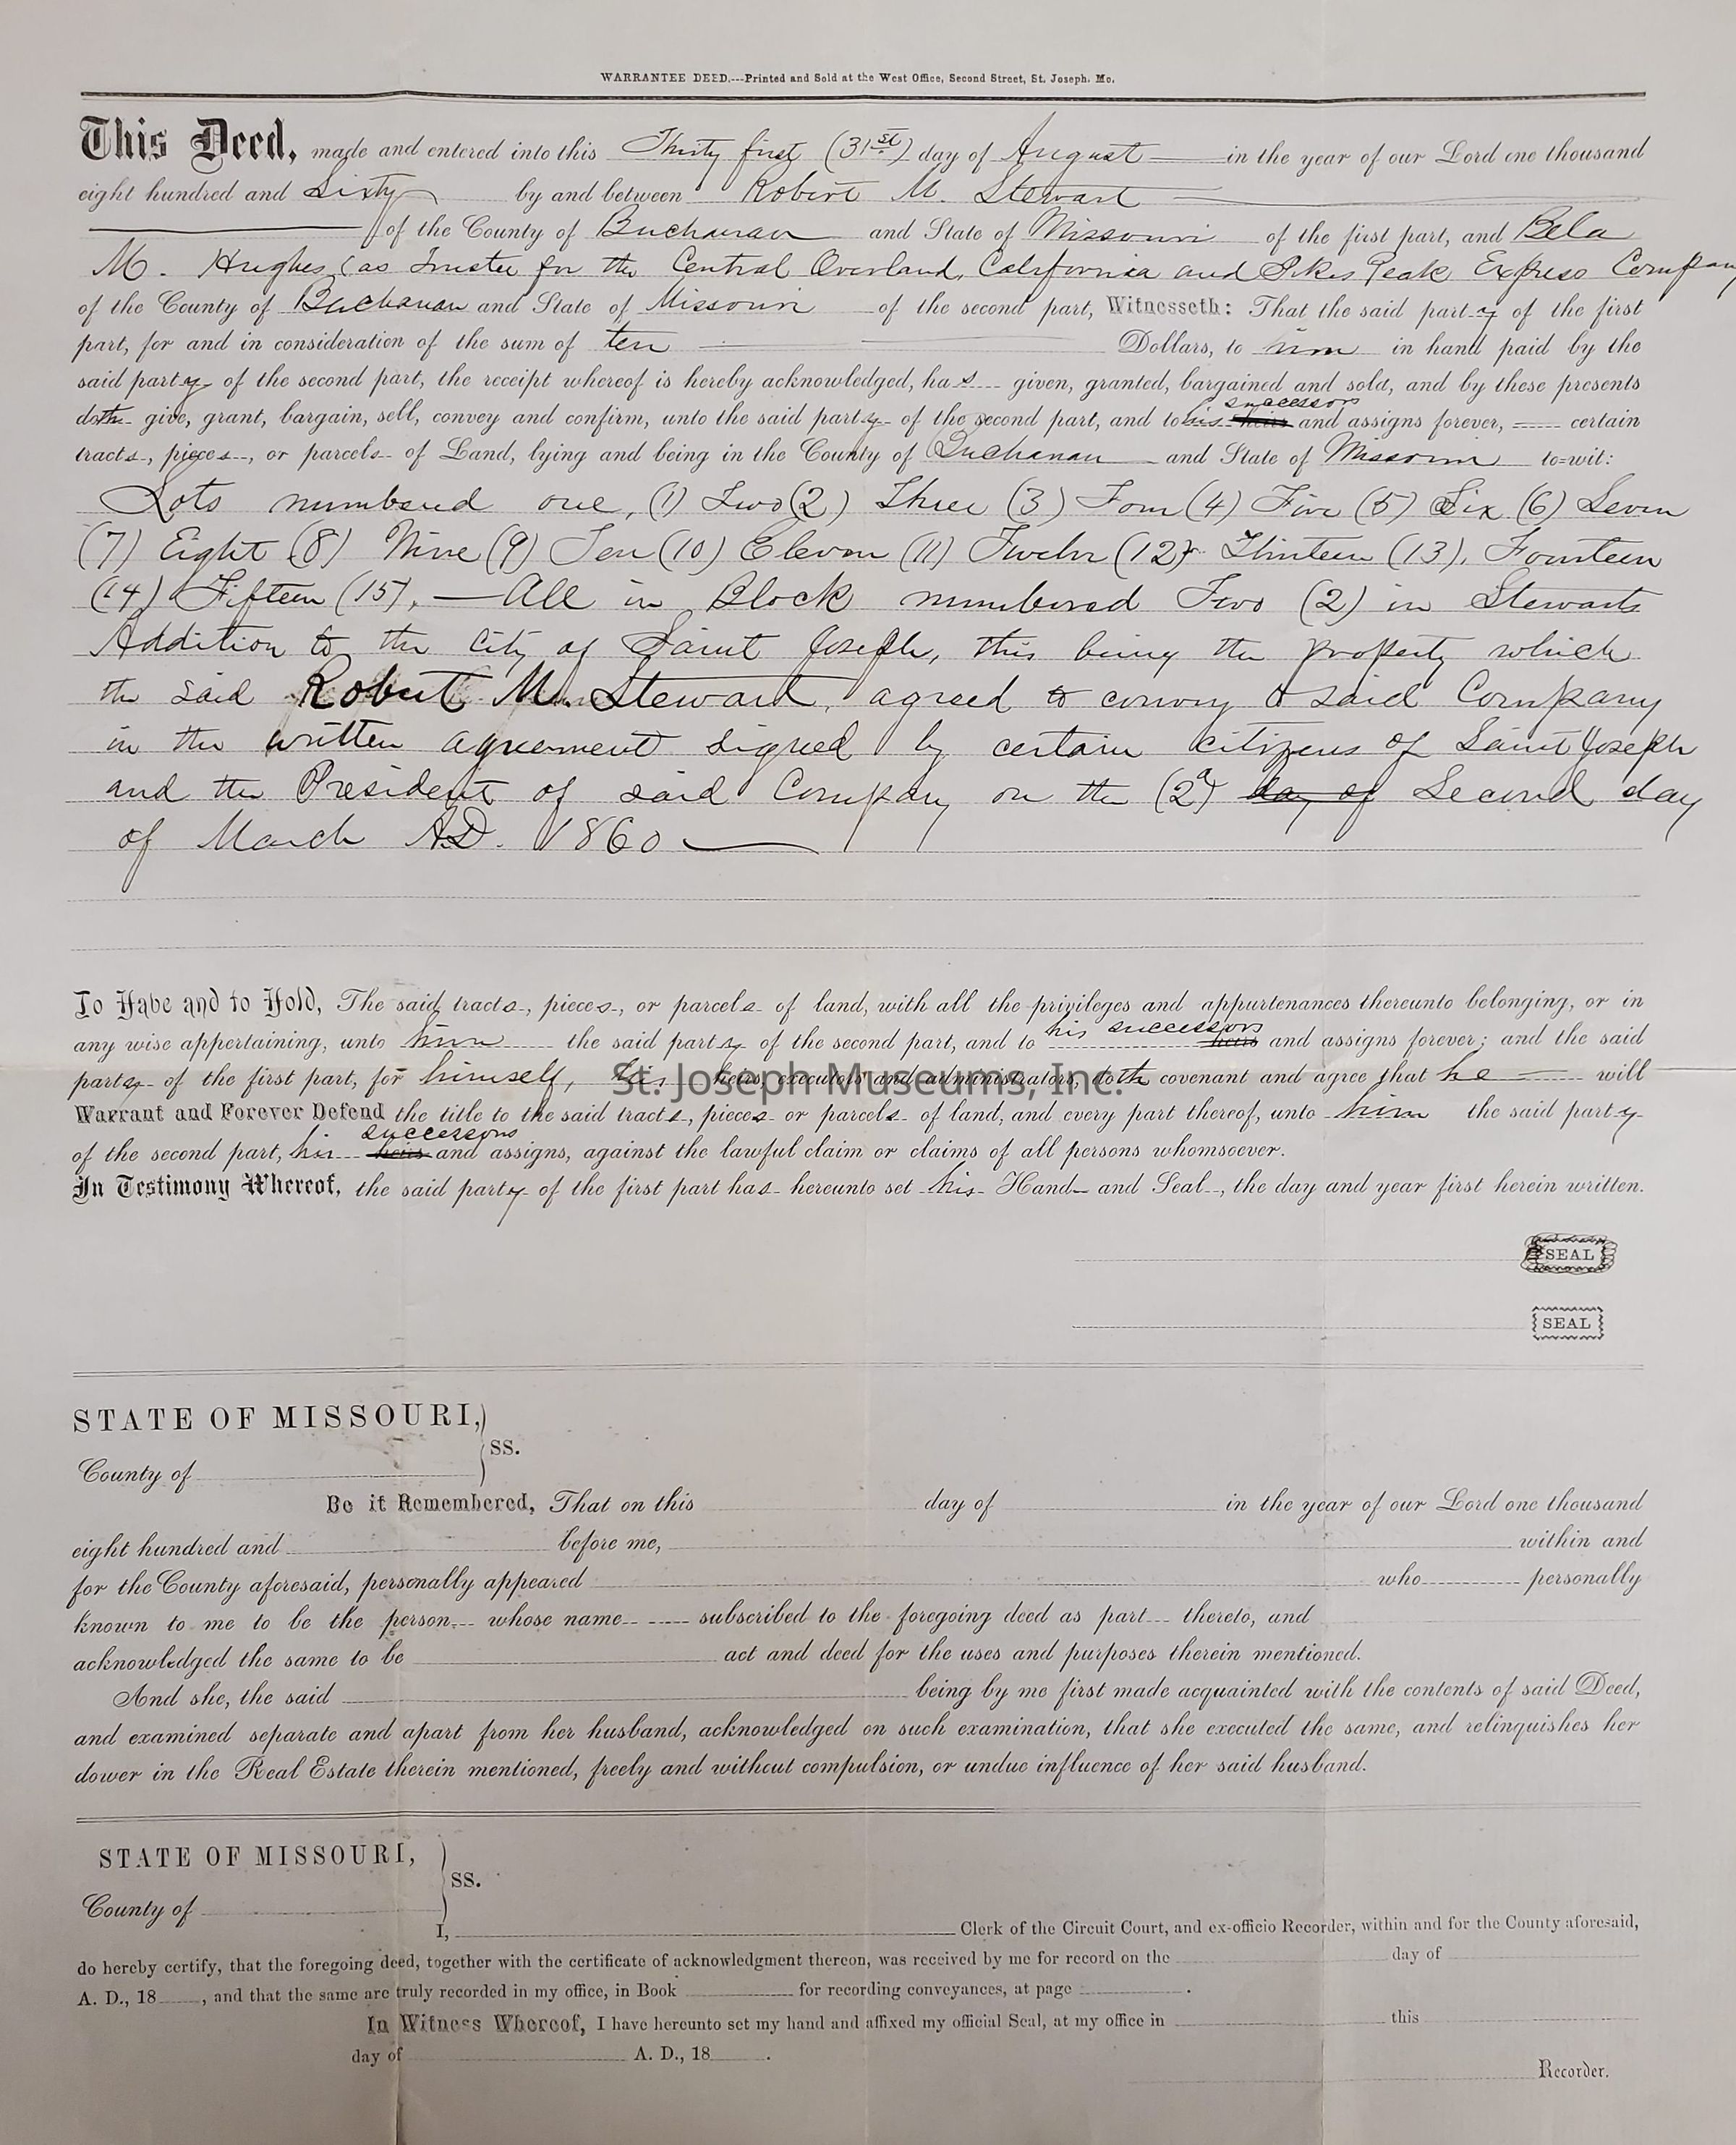 WARRANTEE DEED.---Printed and Sold at the West Office, Second Street, St. Joseph. Mo.
This Deed, made and entered into this Thirty first (31st) day of August in the year of our Lord one thousand
eight hundred and Sixty by and between Robert M. Stewart
of the County of Buchanan and State of Missouri of the first part, and Bela
M. Hughes, (as Trustee for the Central Overland, California and Pikes Peak Express Company
of the County of Buchanan and State of Missouri of the second part, Witnesseth: That the said party of the first
part, for and in consideration of the sum of ten Dollars, to him in hand paid by the
said party of the second part, the receipt whereof is hereby acknowledged, has given, granted, bargained and sold, and by these presents
successors
doth give, grant, bargain, sell, convey and confirm, unto the said party of the second part, and to his heirs and assigns forever, certain
tracts, pieces, or parcels of Land, lying and being in the County of Buchanan and State of Missouri to=wit:
Lots numbered one, (1) Two (2) Three (3) Four (4) Five (5) Six (6) Seven
(7) Eight (8) Nine (9) Ten (10) Eleven (11) Twelve (12) Thirteen (13), Fourteen
(14) Fifteen (15), — All in Block numbered Two (2) in Stewarts
Addition to the City of Saint Joseph, this being the property which
the said Robert M. Steward, agreed to convey to said Company
in the written agreement signed by certain citizens of Saint Joseph
and the President of said Company on the (2d) day of Second day
of March A.D. 1860
To Have and to Hold, The said tracts, pieces, or parcels of land, with all the privileges and appurtenances thereunto belonging, or in
his successors
any wise appertaining, unto him the said party of the second part, and to heirs and assigns forever; and the said
party of the first part, for himself, his heirs, executors and administrators, doth covenant and agree that he will
St. Joseph Museums, Inc.
Warrant and Forever Defend the title to the said tracts, pieces or parcels of land, and every part thereof, unto him the said party
successors
of the second part, his heirs and assigns, against the lawful claim or claims of all persons whomsoever.
In Testimony Whereof, the said party of the first part has hereunto set his Hand and Seal, the day and year first herein written.
SEAL
SEAL
STATE OF MISSOURI,
SS.
County of
Be it Remembered, That on this day of in the year of our Lord one thousand
eight hundred and before me, within and
for the County aforesaid, personally appeared who personally
known to me to be the person whose name subscribed to the foregoing deed as part thereto, and
acknowledged the same to be act and deed for the uses and purposes therein mentioned.
And she, the said being by me first made acquainted with the contents of said Deed,
and examined separate and apart from her husband, acknowledged on such examination, that she executed the same, and relinquishes her
dower in the Real Estate therein mentioned, freely and without compulsion, or undue influence of her said husband.
STATE OF MISSOURI,
SS.
County of
I, Clerk of the Circuit Court, and ex-officio Recorder, within and for the County aforesaid,
do hereby certify, that the foregoing deed, together with the certificate of acknowledgment thereon, was received by me for record on the day of
A. D., 18 , and that the same are truly recorded in my office, in Book for recording conveyances, at page .
In Witness Whereof, I have hereunto set my hand and affixed my official Seal, at my office in this
day of A. D., 18 .
Recorder.